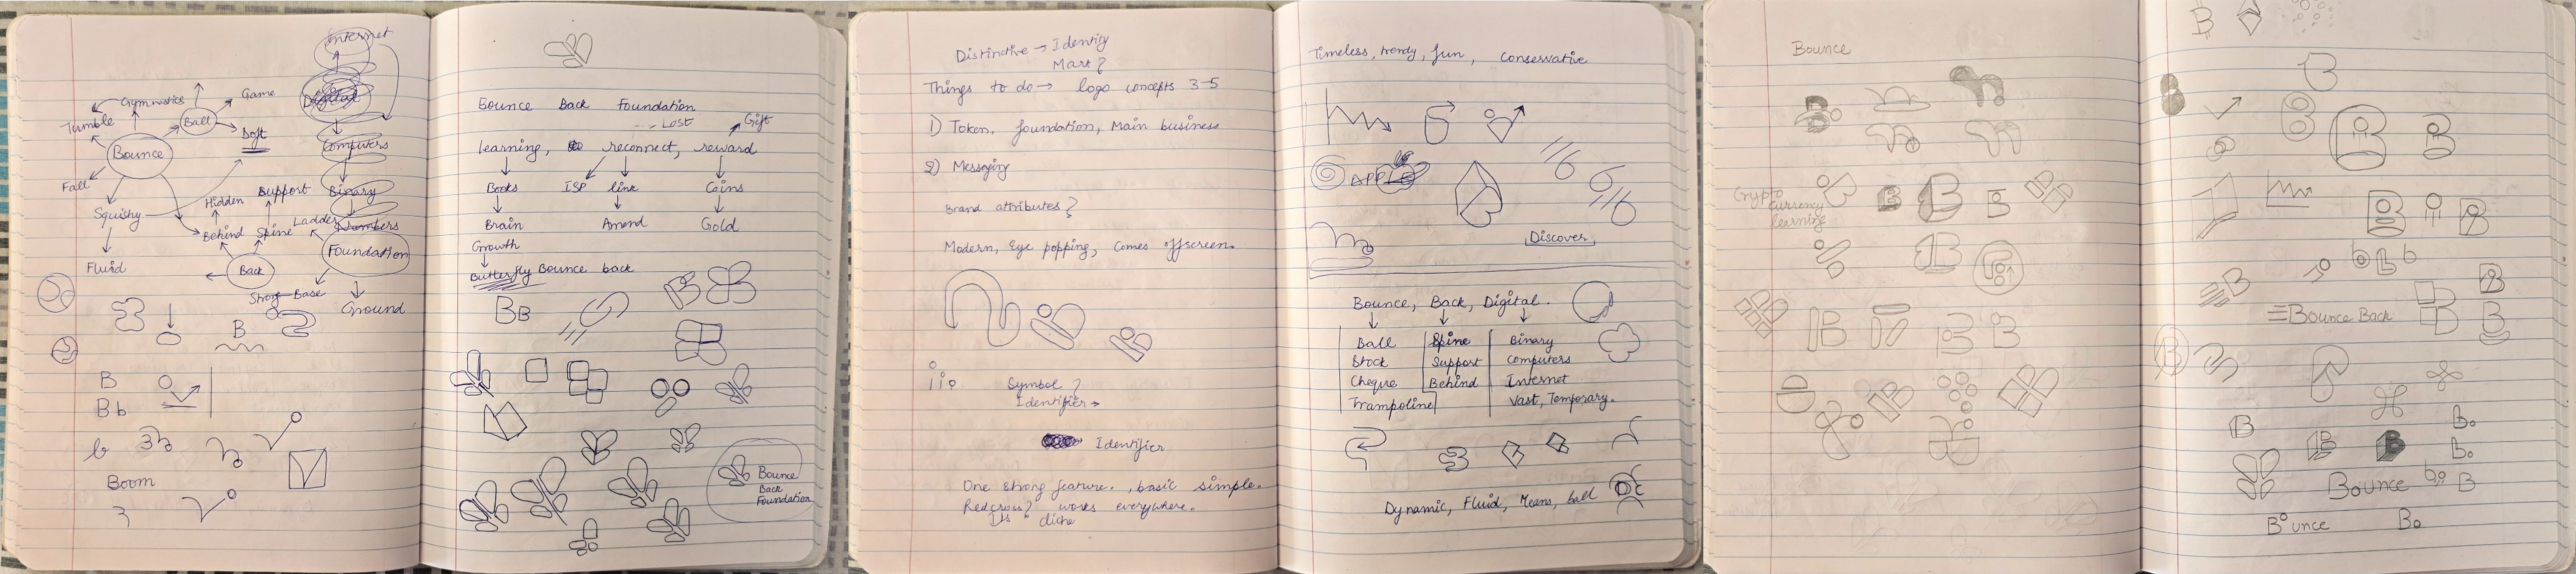 internet
Digital
Gymnastics
Game
Tumble
Ball
Soft
Bounce
Computers
Fall
Support
Binary
Hidden
Squishy
Ladder
Numbers
Behind
Spine
Foundation
Fluid
Back
Strong Base
Ground
B
B
Bb
b
Boom
Bounce Back Foundation
Lost
Gift
learning, reconnect, reward
Books
ISP
link
Coins
Brain
Amend
Gold
Growth
Butterfly Bounce back
BB
Bounce
Back
Foundation
Distinctive → Identity
Mark?
Things to do → logo concepts 3-5
1) Token, foundation, Main business
2) Messaging
Brand attributes?
Modern, Eye popping, Comes offscreen.
Symbol?
Identifier →
Identifier
One strong feature., basic simple.
Redcross? works everywhere.
Its cliche
Timeless, trendy, fun, Conservative
APPLE
Discover,
Bounce, Back, Digital.
Ball Spine Binary
Stock Support Computers
Cheque Behind Internet
Trampoline Vast, Temporary.
Dynamic, Fluid, Means, ball
Bounce
Crypto
currency
learning
B
Bounce Back
B
Bounce
B
Bounce
Bo